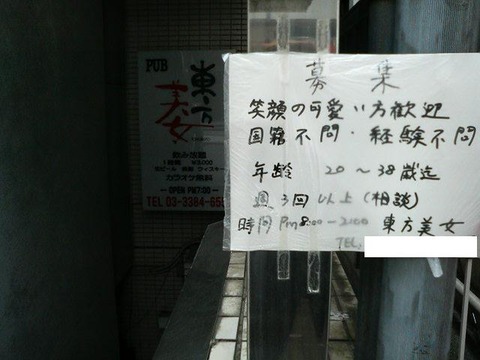 PUB
東方
美女
飲み放題
1時間 ¥3,000
生ビール・焼酎・ウィスキー
カラオケ無料
OPEN PM7:00
TEL 03-3384-655
募集
笑顔の可愛い方歓迎
国籍不問・経験不問
年齢 20〜38歳迄
週3回以上(相談)
時間 Pm8:00-2:00 東方美女
TEL